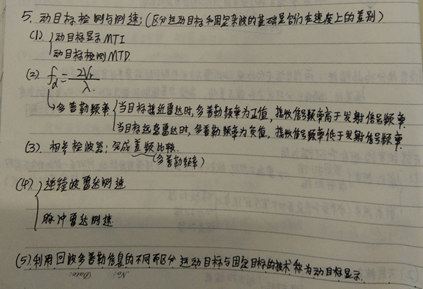 5. 动目标检测与测速:(区分运动目标和固定杂波的基础是它们在速度上的差别)
(1) { 动目标显示 MTI
动目标检测 MTD
(2) fd = 2Vr/λ
↳多普勒频率 { 当目标接近雷达时,多普勒频率为正值,接收信号频率高于发射信号频率.
当目标远离雷达时,多普勒频率为负值,接收信号频率低于发射信号频率.
(3) 相干检波器:完成差频比较
(多普勒频率)
(4) { 连续波雷达测速
脉冲雷达测速
(5) 利用回波多普勒信息的不同而区分运动目标与固定目标的技术称为动目标显示.
No. Date